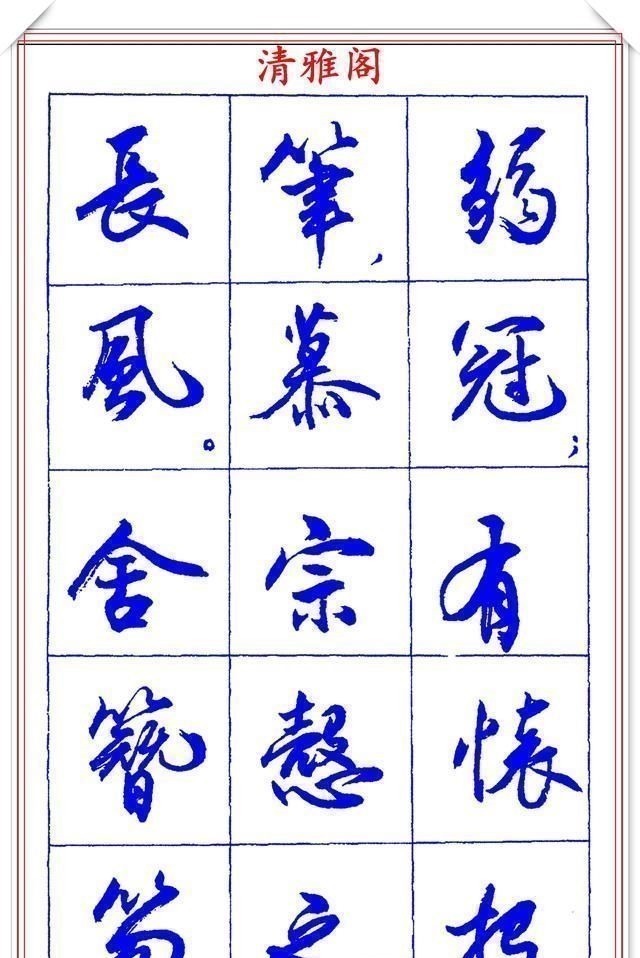 清雅阁
弱冠；有懷投
筆，慕宗慤之
長風。舍簪笏